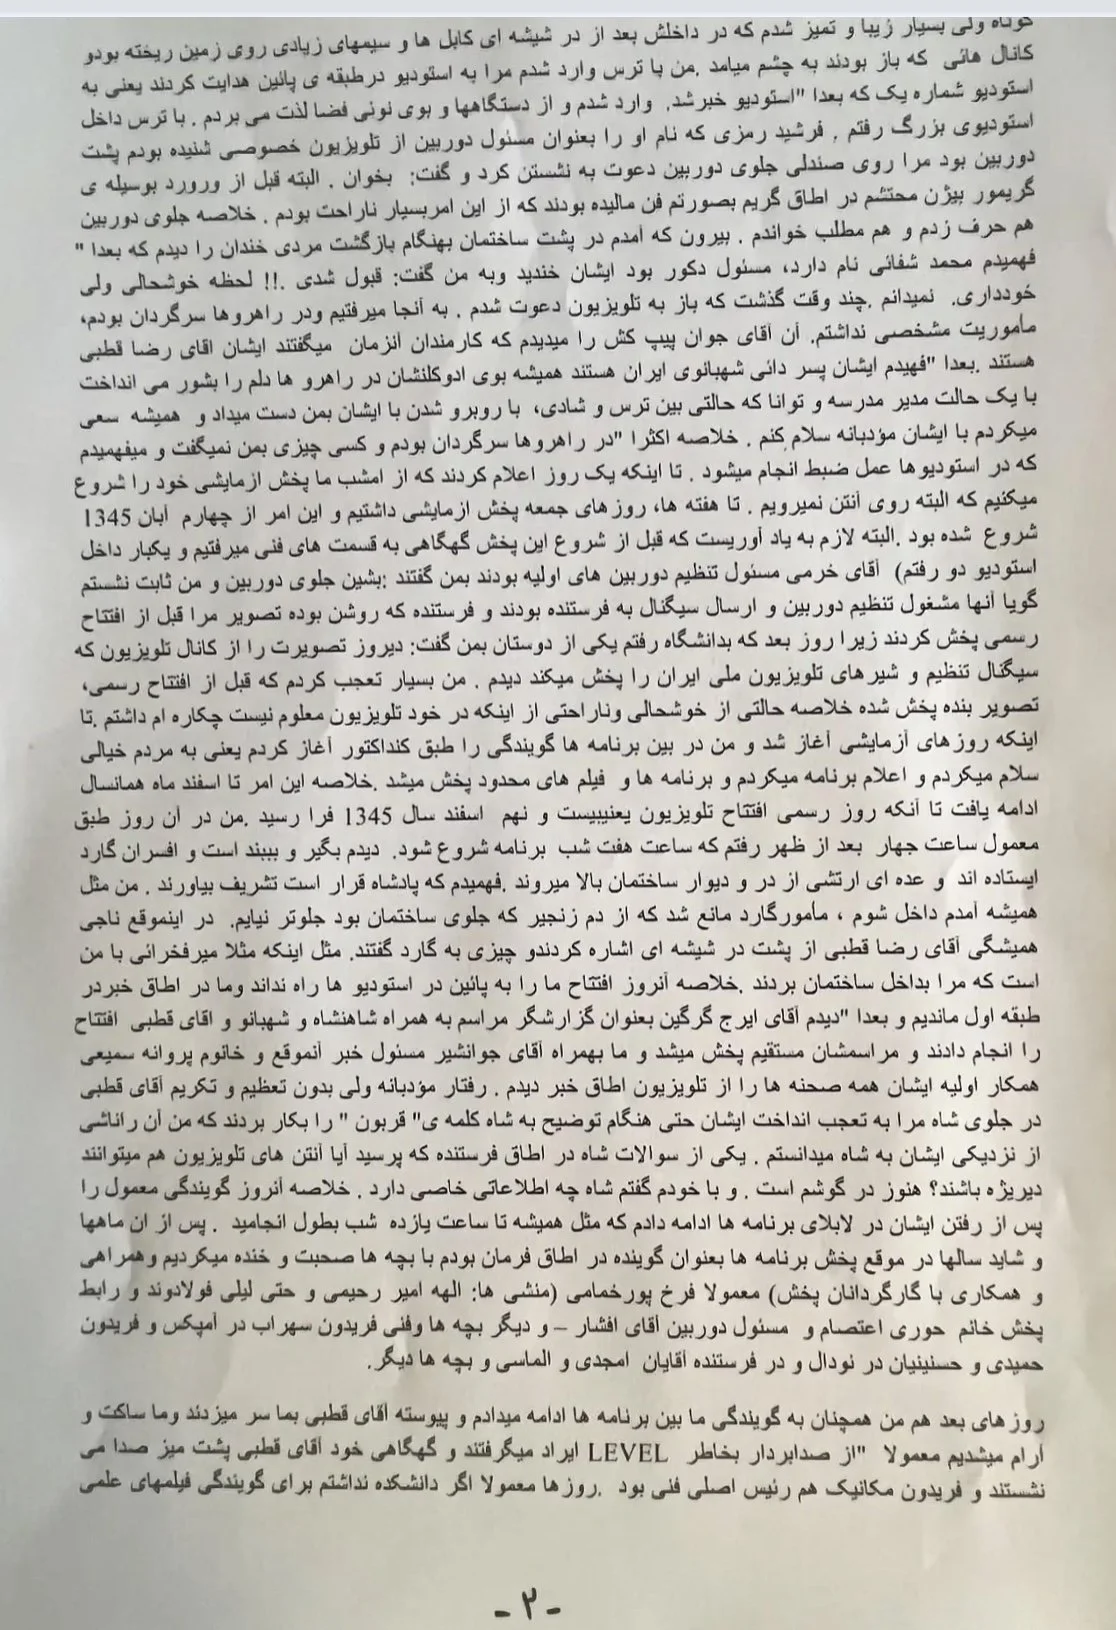 کوتاه ولی بسیار زیبا و تمیز شدم که در داخلش بعد از در شیشه ای کابل ها و سیمهای زیادی روی زمین ریخته بودو
کانال هائی که باز بودند به چشم میامد .من با ترس وارد شدم مرا به استودیو درطبقه ی پائین هدایت کردند یعنی به
استودیو شماره یک که بعدا "استودیو خبرشد. وارد شدم و از دستگاهها و بوی نوئی فضا لذت می بردم . با ترس داخل
استودیوی بزرگ رفتم . فرشید رمزی که نام او را بعنوان مسئول دوربین از تلویزیون خصوصی شنیده بودم پشت
دوربین بود مرا روی صندلی جلوی دوربین دعوت به نشستن کرد و گفت: بخوان . البته قبل از ورورد بوسیله ی
گریمور بیژن محتشم در اطاق گریم بصورتم فن مالیده بودند که از این امربسیار ناراحت بودم . خلاصه جلوی دوربین
هم حرف زدم و هم مطلب خواندم . بیرون که آمدم در پشت ساختمان بهنگام بازگشت مردی خندان را دیدم که بعدا "
فهمیدم محمد شفائی نام دارد، مسئول دکور بود ایشان خندید وبه من گفت: قبول شدی .!! لحظه خوشحالی ولی
خودداری. نمیدانم .چند وقت گذشت که باز به تلویزیون دعوت شدم . به آنجا میرفتیم ودر راهروها سرگردان بودم،
ماموریت مشخصی نداشتم. آن آقای جوان پیپ کش را میدیدم که کارمندان آنزمان میگفتند ایشان اقای رضا قطبی
هستند .بعدا "فهیدم ایشان پسر دائی شهبانوی ایران هستند همیشه بوی ادوکلنشان در راهرو ها دلم را بشور می انداخت
با یک حالت مدیر مدرسه و توانا که حالتی بین ترس و شادی، با روبرو شدن با ایشان بمن دست میداد و همیشه سعی
میکردم با ایشان مؤدبانه سلام کنم . خلاصه اکثرا "در راهروها سرگردان بودم و کسی چیزی بمن نمیگفت و میفهمیدم
که در استودیوها عمل ضبط انجام میشود . تا اینکه یک روز اعلام کردند که از امشب ما پخش ازمایشی خود را شروع
میکنیم که البته روی آنتن نمیرویم . تا هفته ها، روزهای جمعه پخش ازمایشی داشتیم و این امر از چهارم آبان 1345
شروع شده بود .البته لازم به یاد آوریست که قبل از شروع این پخش گهگاهی به قسمت های فنی میرفتیم و یکبار داخل
استودیو دو رفتم) آقای خرمی مسئول تنظیم دوربین های اولیه بودند بمن گفتند :بشین جلوی دوربین و من ثابت نشستم
گویا آنها مشغول تنظیم دوربین و ارسال سیگنال به فرستنده بودند و فرستنده که روشن بوده تصویر مرا قبل از افتتاح
رسمی پخش کردند زیرا روز بعد که بدانشگاه رفتم یکی از دوستان بمن گفت: دیروز تصویرت را از کانال تلویزیون که
سیگنال تنظیم و شیرهای تلویزیون ملی ایران را پخش میکند دیدم . من بسیار تعجب کردم که قبل از افتتاح رسمی،
تصویر بنده پخش شده خلاصه حالتی از خوشحالی وناراحتی از اینکه در خود تلویزیون معلوم نیست چکاره ام داشتم .تا
اینکه روزهای آزمایشی آغاز شد و من در بین برنامه ها گویندگی را طبق کنداکتور آغاز کردم یعنی به مردم خیالی
سلام میکردم و اعلام برنامه میکردم و برنامه ها و فیلم های محدود پخش میشد .خلاصه این امر تا اسفند ماه همانسال
ادامه یافت تا آنکه روز رسمی افتتاح تلویزیون یعنیبیست و نهم اسفند سال 1345 فرا رسید .من در آن روز طبق
معمول ساعت جهار بعد از ظهر رفتم که ساعت هفت شب برنامه شروع شود. دیدم بگیر و ببند است و افسران گارد
ایستاده اند و عده ای ارتشی از در و دیوار ساختمان بالا میروند .فهمیدم که پادشاه قرار است تشریف بیاورند . من مثل
همیشه آمدم داخل شوم ، مأمورگارد مانع شد که از دم زنجیر که جلوی ساختمان بود جلوتر نیایم. در اینموقع ناجی
همیشگی آقای رضا قطبی از پشت در شیشه ای اشاره کردندو چیزی به گارد گفتند. مثل اینکه مثلا میرفخرائی با من
است که مرا بداخل ساختمان بردند .خلاصه آنروز افتتاح ما را به پائین در استودیو ها راه نداند وما در اطاق خبردر
طبقه اول ماندیم و بعدا "دیدم آقای ایرج گرگین بعنوان گزارشگر مراسم به همراه شاهنشاه و شهبانو و اقای قطبی افتتاح
را انجام دادند و مراسمشان مستقیم پخش میشد و ما بهمراه آقای جوانشیر مسئول خبر آنموقع و خانوم پروانه سمیعی
همکار اولیه ایشان همه صحنه ها را از تلویزیون اطاق خبر دیدم . رفتار مؤدبانه ولی بدون تعظیم و تکریم آقای قطبی
در جلوی شاه مرا به تعجب انداخت ایشان حتی هنگام توضیح به شاه کلمه ی" قربون " را بکار بردند که من آن راناشی
از نزدیکی ایشان به شاه میدانستم . یکی از سوالات شاه در اطاق فرستنده که پرسید آیا آنتن های تلویزیون هم میتوانند
دیریژه باشند؟ هنوز در گوشم است . و با خودم گفتم شاه چه اطلاعاتی خاصی دارد . خلاصه آنروز گویندگی معمول را
پس از رفتن ایشان در لابلای برنامه ها ادامه دادم که مثل همیشه تا ساعت یازده شب بطول انجامید . پس از ان ماهها
و شاید سالها در موقع پخش برنامه ها بعنوان گوینده در اطاق فرمان بودم با بچه ها صحبت و خنده میکردیم وهمراهی
و همکاری با گارگردانان پخش) معمولا فرخ پورخمامی (منشی ها: الهه امیر رحیمی و حتی لیلی فولادوند و رابط
پخش خانم حوری اعتصام و مسئول دوربین آقای افشار – و دیگر بچه ها وفنی فریدون سهراب در آمپکس و فریدون
حمیدی و حسنینیان در نودال و در فرستنده آقایان امجدی و الماسی و بچه ها دیگر.
روزهای بعد هم من همچنان به گویندگی ما بین برنامه ها ادامه میدادم و پیوسته آقای قطبی بما سر میزدند وما ساکت و
آرام میشدیم معمولا "از صدابردار بخاطر LEVEL ایراد میگرفتند و گهگاهی خود آقای قطبی پشت میز صدا می
نشستند و فریدون مکانیک هم رئیس اصلی فنی بود .روزها معمولا اگر دانشکده نداشتم برای گویندگی فیلمهای علمی
- ۲ -